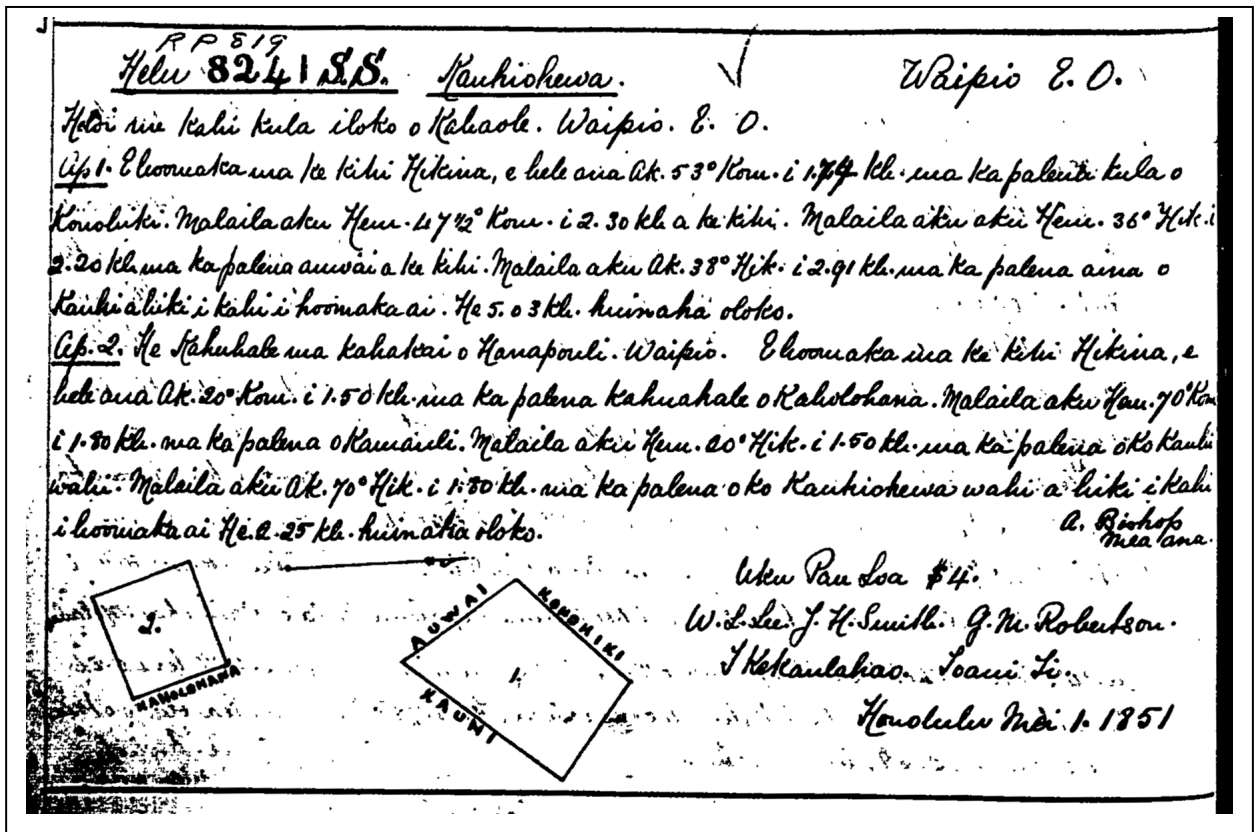 R P 819
Helu 8241 S.S. Kauhiohewa. Waipio E. O.
me kahi kula iloko o Kahaole. Waipio. E. O.
Ap 1. E hoomaka ma ke kihi Hikina, e hele ana Ak. 53° Kom. i kh. ma ka palena kula o
Konohiki. Malaila aku Hem. 47½° Kom. i 2.30 kh a ke kihi. Malaila aku aku Hem. 36° Hik. i
2.20 kh. ma ka palena auwai a ke kihi. Malaila aku Ak. 38° Hik. i 2.91 kh. ma ka palena aina o
Kauhi a hiki i kahi i hoomaka ai. He 5.03 kh. huinaha oloko.
Ap. 2. He Kahuhale ma kahakai o Hanapouli. Waipio. E hoomaka ma ke kihi Hikina, e
hele ana Ak. 20° Kom. i 1.50 kh. ma ka palena kahuahale o Kaholohana. Malaila aku Hem. 70° Kom
i 1.80 kh. ma ka palena o Kamauli. Malaila aku Hem. 20° Hik. i 1.50 kh. ma ka palena o ko Kauhi
wahi. Malaila aku Ak. 70° Hik. i 1.80 kh. ma ka palena o ko Kauhiohewa wahi a hiki i kahi
i hoomaka ai He 2.25 kh. huinaha oloko.
A. Bishop
Mea ana.
Uku Pau Loa $4.
W. L. Lee. J. H. Smith. G. M. Robertson.
J Kekaulahao. Ioani Ii.
Honolulu Mei 1. 1851
2.
KAHOLOHANA
AUWAI
KONOHIKI
1.
KAUHI